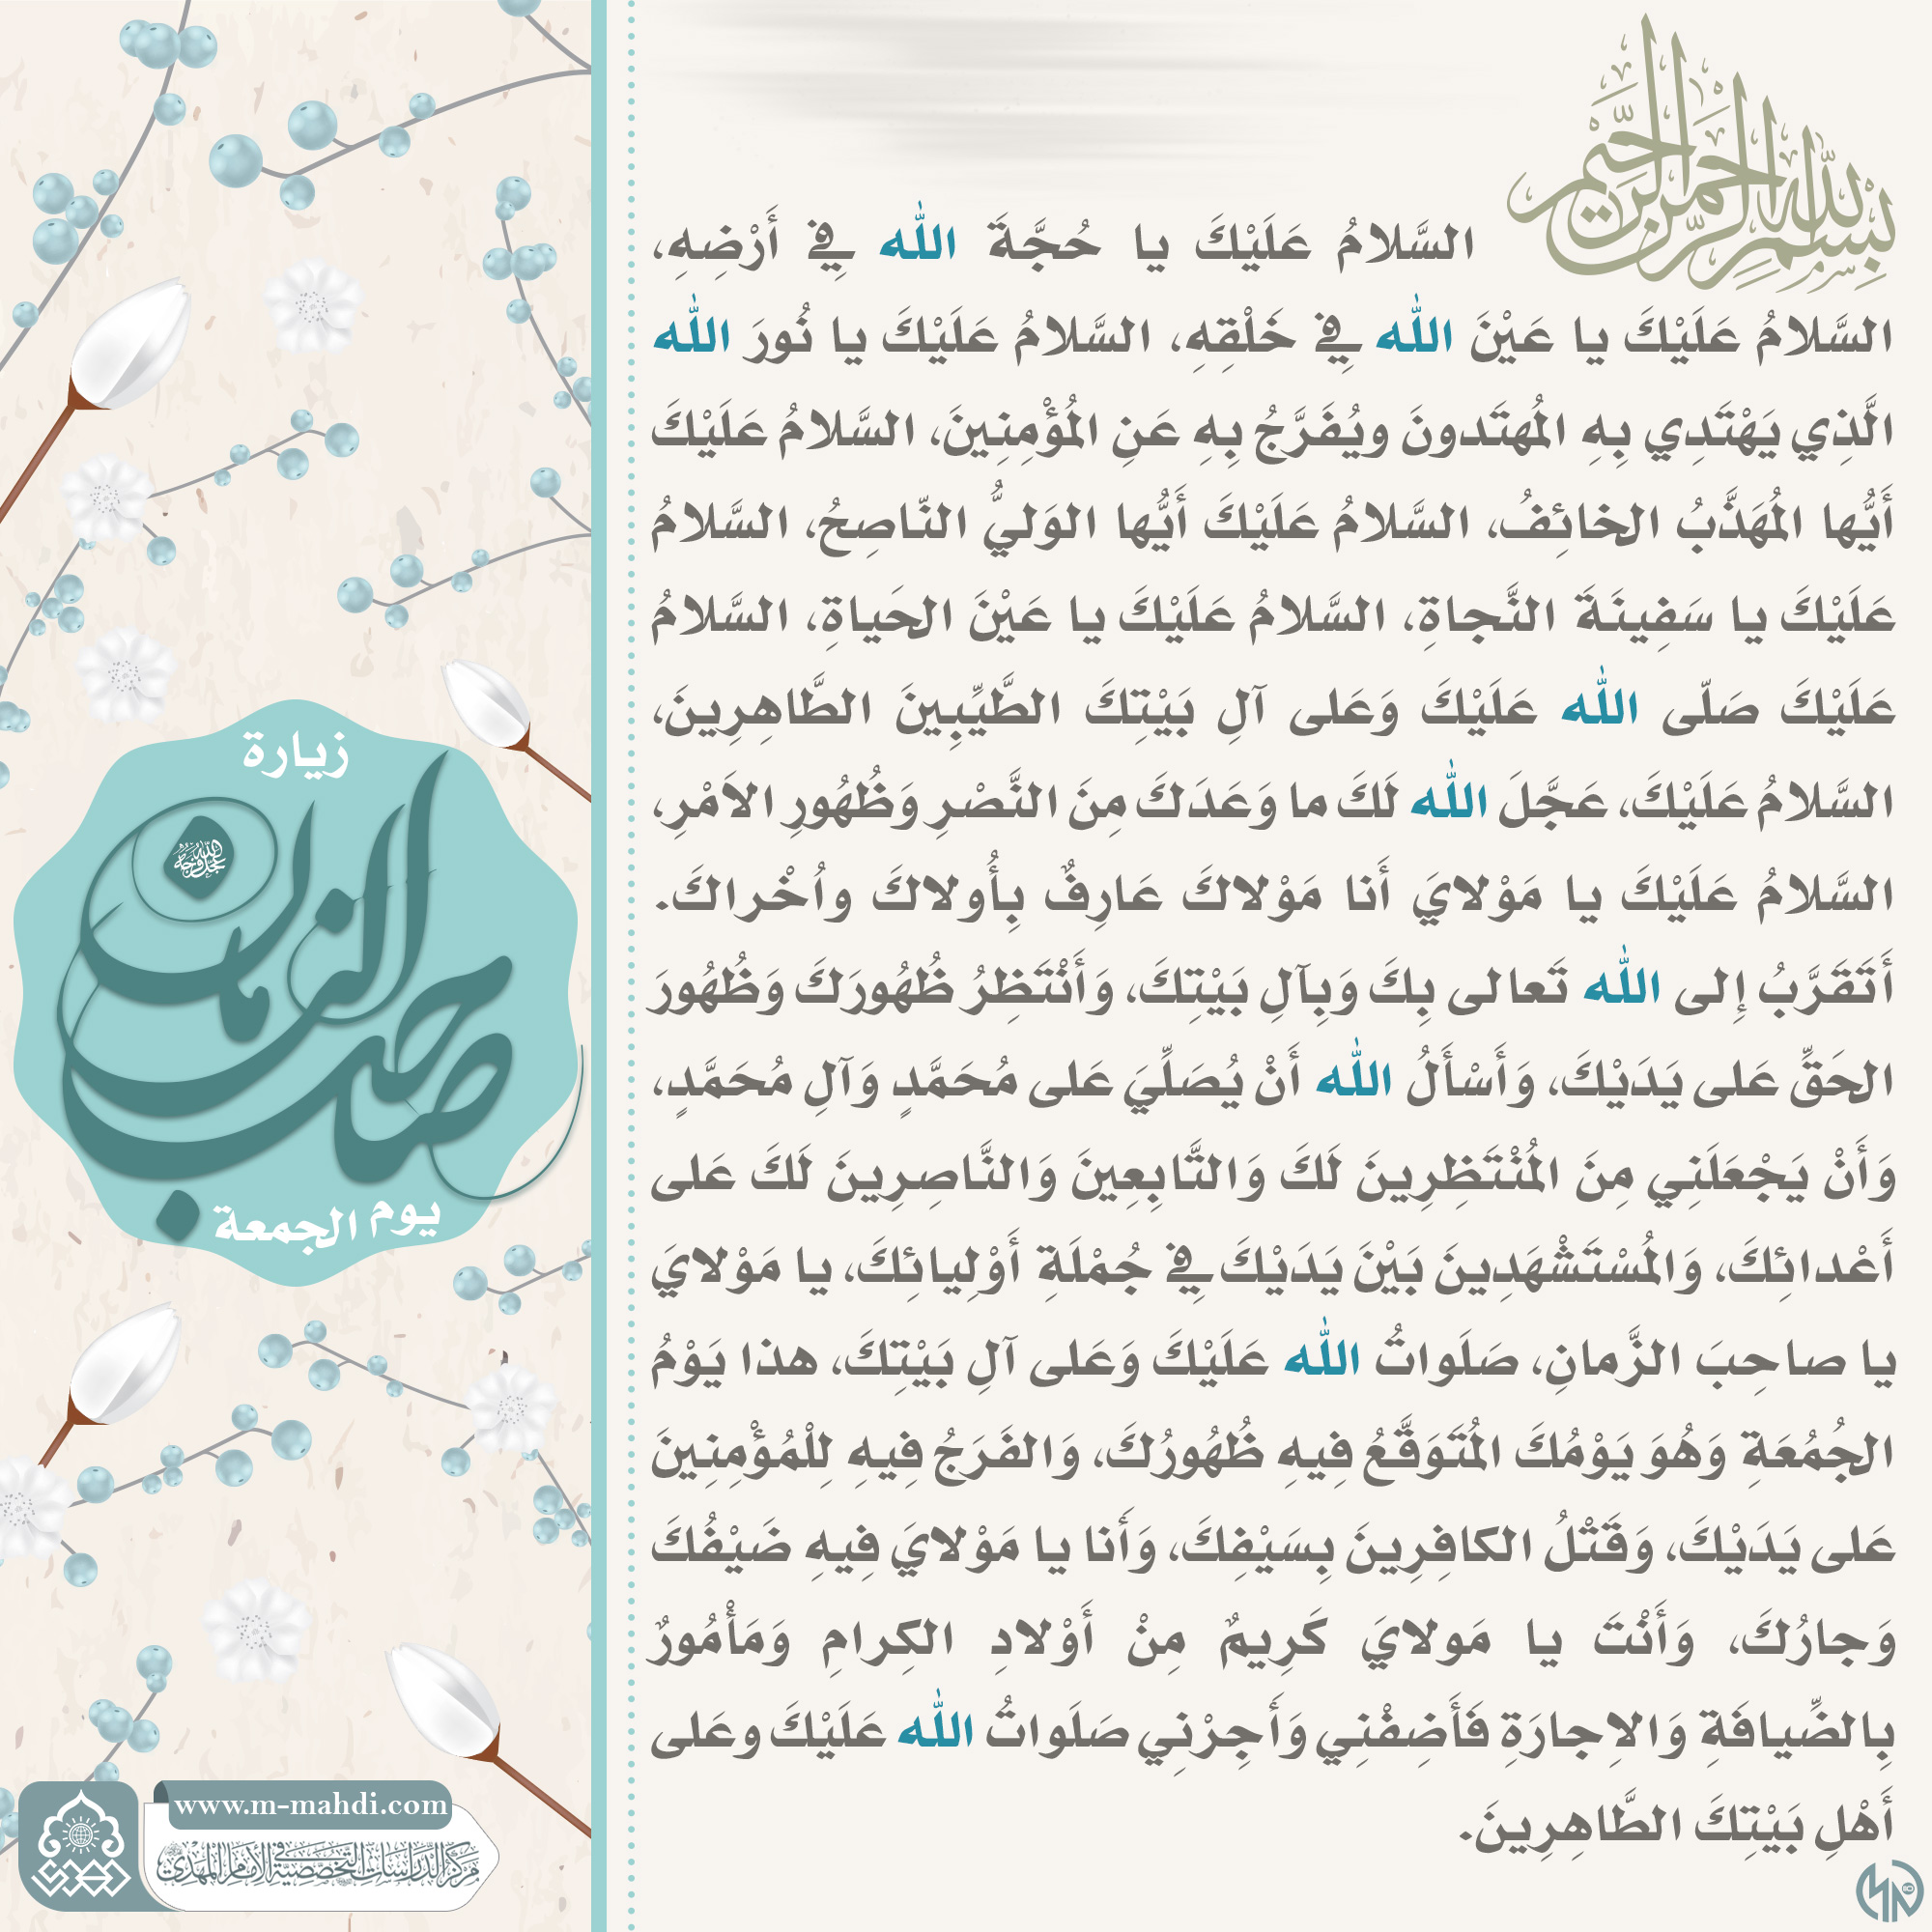 بِسْمِ اللهِ الرَّحْمنِ الرَّحِيمِ
السَّلامُ عَلَيْكَ يا حُجَّةَ الله فِي أَرْضِهِ،
السَّلامُ عَلَيْكَ يا عَيْنَ الله فِي خَلْقِهِ، السَّلامُ عَلَيْكَ يا نُورَ الله
الَّذِي يَهْتَدِي بِهِ المُهتَدونَ ويُفَرَّجُ بِهِ عَنِ المُؤْمِنِينَ، السَّلامُ عَلَيْكَ
أَيُّها المُهَذَّبُ الخائِفُ، السَّلامُ عَلَيْكَ أَيُّها الوَليُّ النّاصِحُ، السَّلامُ
عَلَيْكَ يا سَفِينَةَ النَّجاةِ، السَّلامُ عَلَيْكَ يا عَيْنَ الحَياةِ، السَّلامُ
عَلَيْكَ صَلّى الله عَلَيْكَ وَعَلى آلِ بَيْتِكَ الطَّيِّبِينَ الطَّاهِرِينَ،
السَّلامُ عَلَيْكَ، عَجَّلَ الله لَكَ ما وَعَدَكَ مِنَ النَّصْرِ وَظُهُورِ الاَمْرِ،
السَّلامُ عَلَيْكَ يا مَوْلايَ أَنا مَوْلاكَ عَارِفٌ بِأُولاكَ واُخْراكَ.
أَتَقَرَّبُ إِلى الله تَعالى بِكَ وَبِآلِ بَيْتِكَ، وَأَنْتَظِرُ ظُهُورَكَ وَظُهُورَ
الحَقِّ عَلى يَدَيْكَ، وَأَسْأَلُ الله أَنْ يُصَلِّيَ عَلى مُحَمَّدٍ وَآلِ مُحَمَّدٍ،
وَأَنْ يَجْعَلَنِي مِنَ المُنْتَظِرِينَ لَكَ وَالتَّابِعِينَ وَالنَّاصِرِينَ لَكَ عَلى
أَعْدائِكَ، وَالمُسْتَشْهَدِينَ بَيْنَ يَدَيْكَ فِي جُمْلَةِ أَوْلِيائِكَ، يا مَوْلايَ
يا صاحِبَ الزَّمانِ، صَلَواتُ الله عَلَيْكَ وَعَلى آلِ بَيْتِكَ، هذا يَوْمُ
الجُمُعَةِ وَهُوَ يَوْمُكَ المُتَوَقَّعُ فِيهِ ظُهُورُكَ، وَالفَرَجُ فِيهِ لِلْمُؤْمِنِينَ
عَلى يَدَيْكَ، وَقَتْلُ الكافِرِينَ بِسَيْفِكَ، وَأَنا يا مَوْلايَ فِيهِ ضَيْفُكَ
وَجارُكَ، وَأَنْتَ يا مَولايَ كَرِيمٌ مِنْ أَوْلادِ الكِرامِ وَمَأْمُورٌ
بِالضِّيافَةِ وَالاِجارَةِ فَأَضِفْنِي وَأَجِرْنِي صَلَواتُ الله عَلَيْكَ وعَلى
أَهْلِ بَيْتِكَ الطَّاهِرِينَ.
زيارة
صاحب الزمان
عجل الله فرجه
يوم الجمعة
www.m-mahdi.com
مركز الدراسات التخصصية في الإمام المهدي